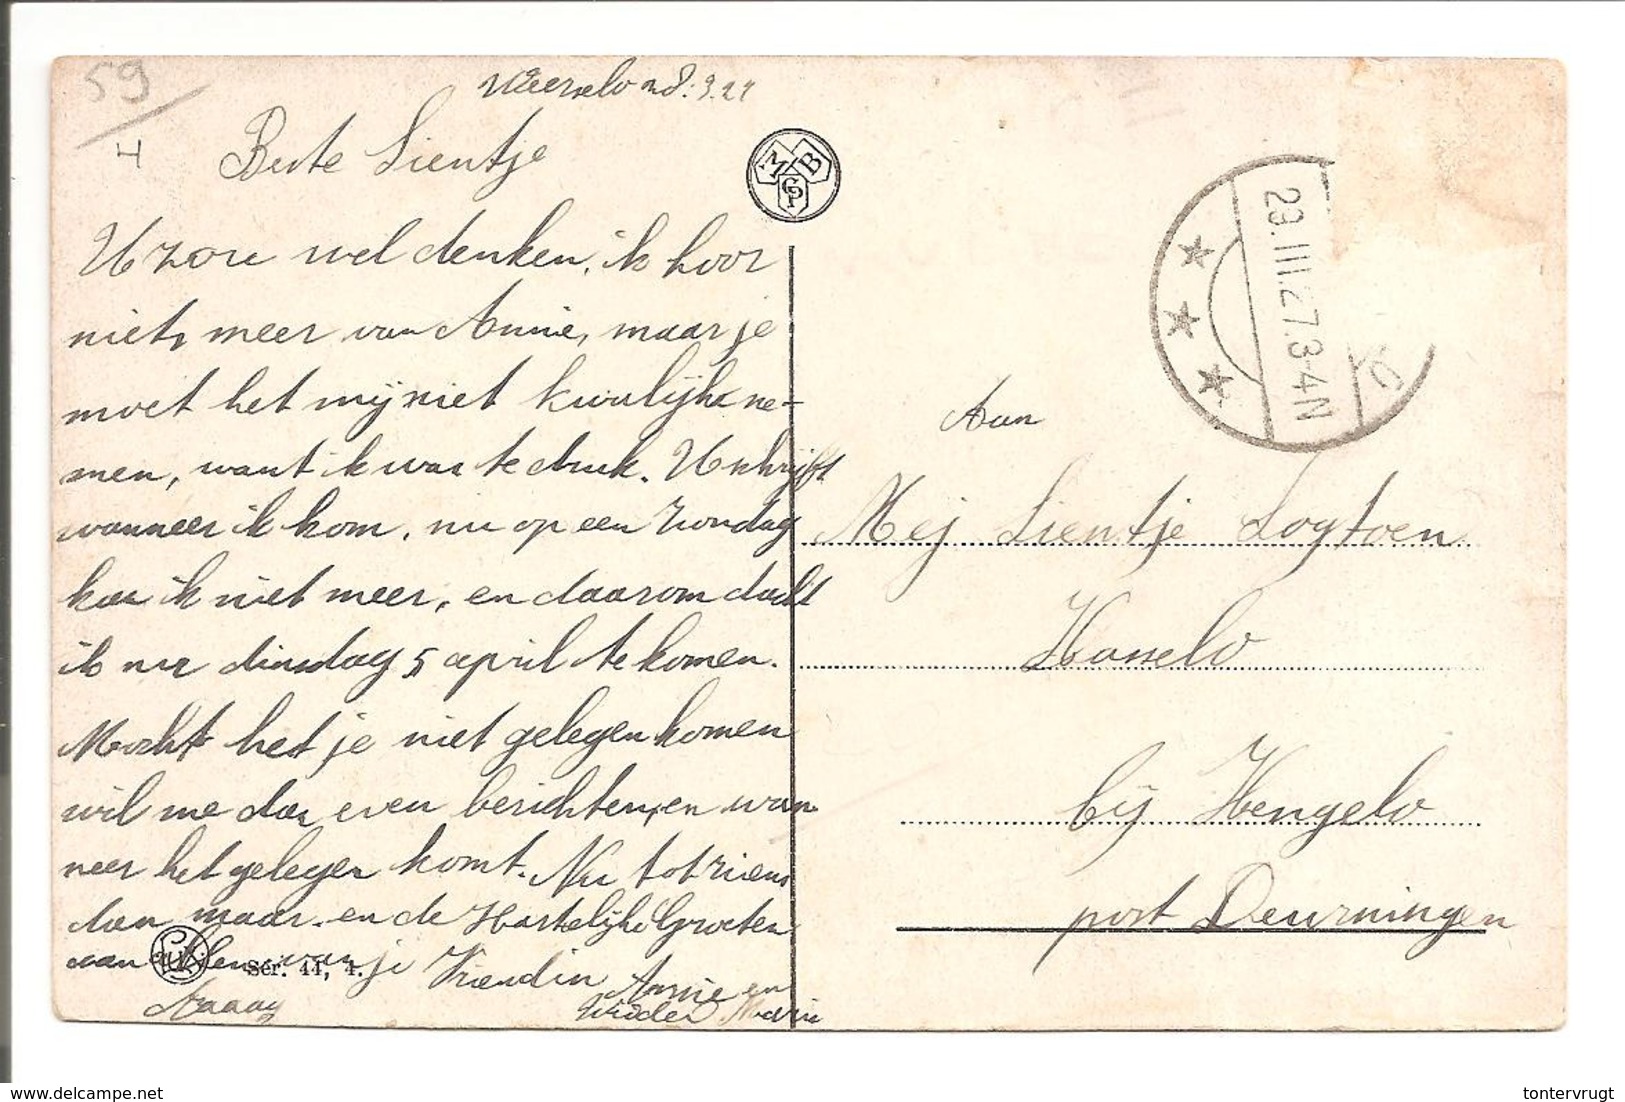 59
4
Weerselo 28.3.27
Beste Lientje
U zou wel denken, ik hoor
niets meer van Annie, maar je
moet het mij niet kwalijk ne-
men, want ik was te druk. U schrijft
wanneer ik kom, nu op een zondag
kan ik niet meer, en daarom dacht
ik nu dinsdag 5 april te komen.
Mocht het je niet gelegen komen
wil me dan even berichten, en wan
neer het gelegen komt. Nu tot ziens
dan maar en de Hartelijke Groeten
aan allen van je Vriendin Annie en
Marie
Ser. 44, 4.
MB
29.III.27.3-4N
Aan
Mej Lientje Logtoen
Hasselo
bij Hengelo
post Deurningen
delcampe.net
tontervrugt